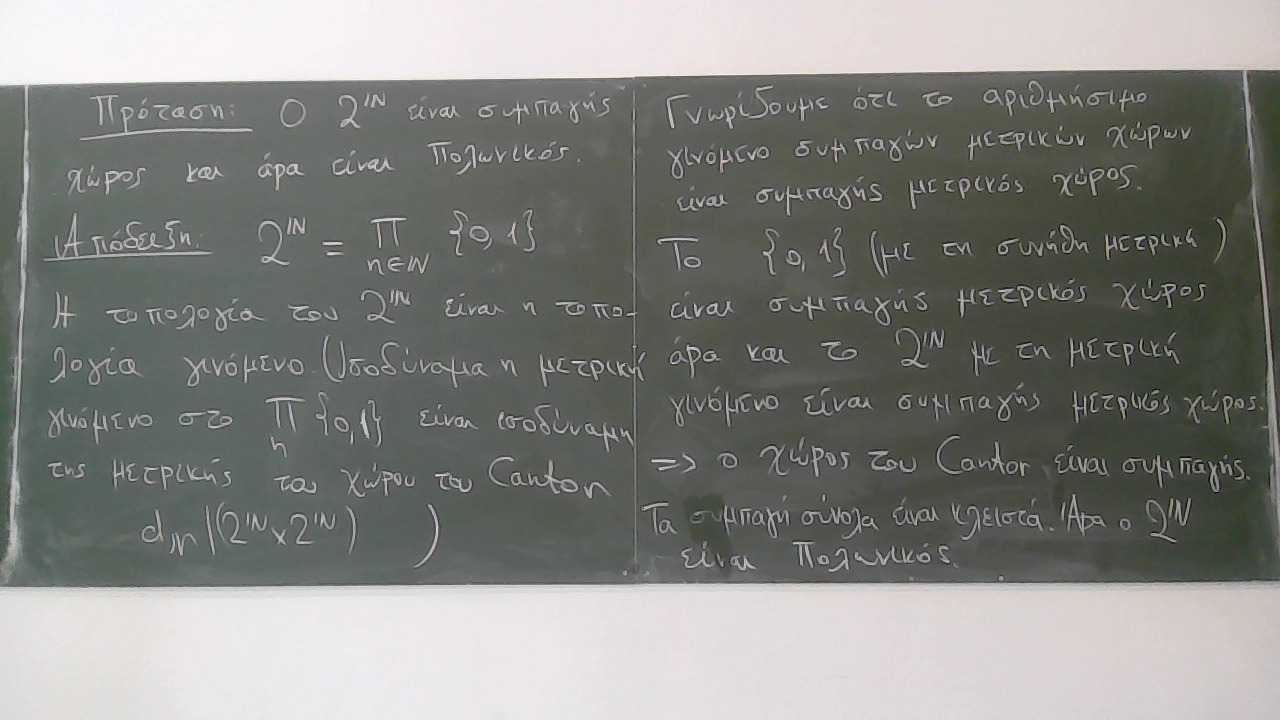 Πρόταση: Ο 2^ℕ είναι συμπαγής
χώρος και άρα είναι Πολωνικός.
Απόδειξη: 2^ℕ = Π_{n∈ℕ} {0,1}
Η τοπολογία του 2^ℕ είναι η τοπο-
λογία γινόμενο. (Ισοδύναμα η μετρική
γινόμενο στο Π_n {0,1} είναι ισοδύναμη
της μετρικής του χώρου του Cantor
d_𝒩|(2^ℕ×2^ℕ) )
Γνωρίζουμε ότι το αριθμήσιμο
γινόμενο συμπαγών μετρικών χώρων
είναι συμπαγής μετρικός χώρος.
Το {0,1} (με τη συνήθη μετρική)
είναι συμπαγής μετρικός χώρος
άρα και το 2^ℕ με τη μετρική
γινόμενο είναι συμπαγής μετρικός χώρος.
=> ο χώρος του Cantor είναι συμπαγής.
Τα συμπαγή σύνολα είναι κλειστά. Άρα ο 2^ℕ
είναι Πολωνικός.